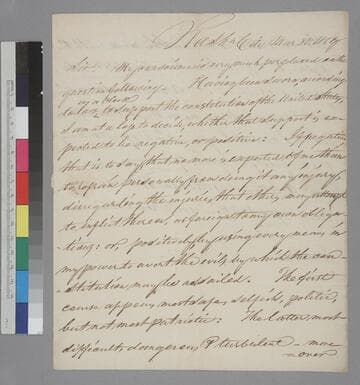 Wash. City, Mar. 30.
Sir. My parson is very much perplexed on the
point in following. Having been sworn, according
in a
to law, to support the constitution of the United States,
I am at a loss to decide, whether that support is ex-
pected to be negative, or positive: If negative
that is to say that no more is expected of me than
to refrain personally from doing it any injury,
disregarding the injuries that others may attempt
to inflict thereon, as foreign to my own obliga-
tions: or positively by using every means in
my power to avert the evils by which the con-
stitution may be assailed. The first
course appears most safe, selfish, politic,
but not most patriotic: The latter, most
difficult, dangerous, & turbulent - more
= over